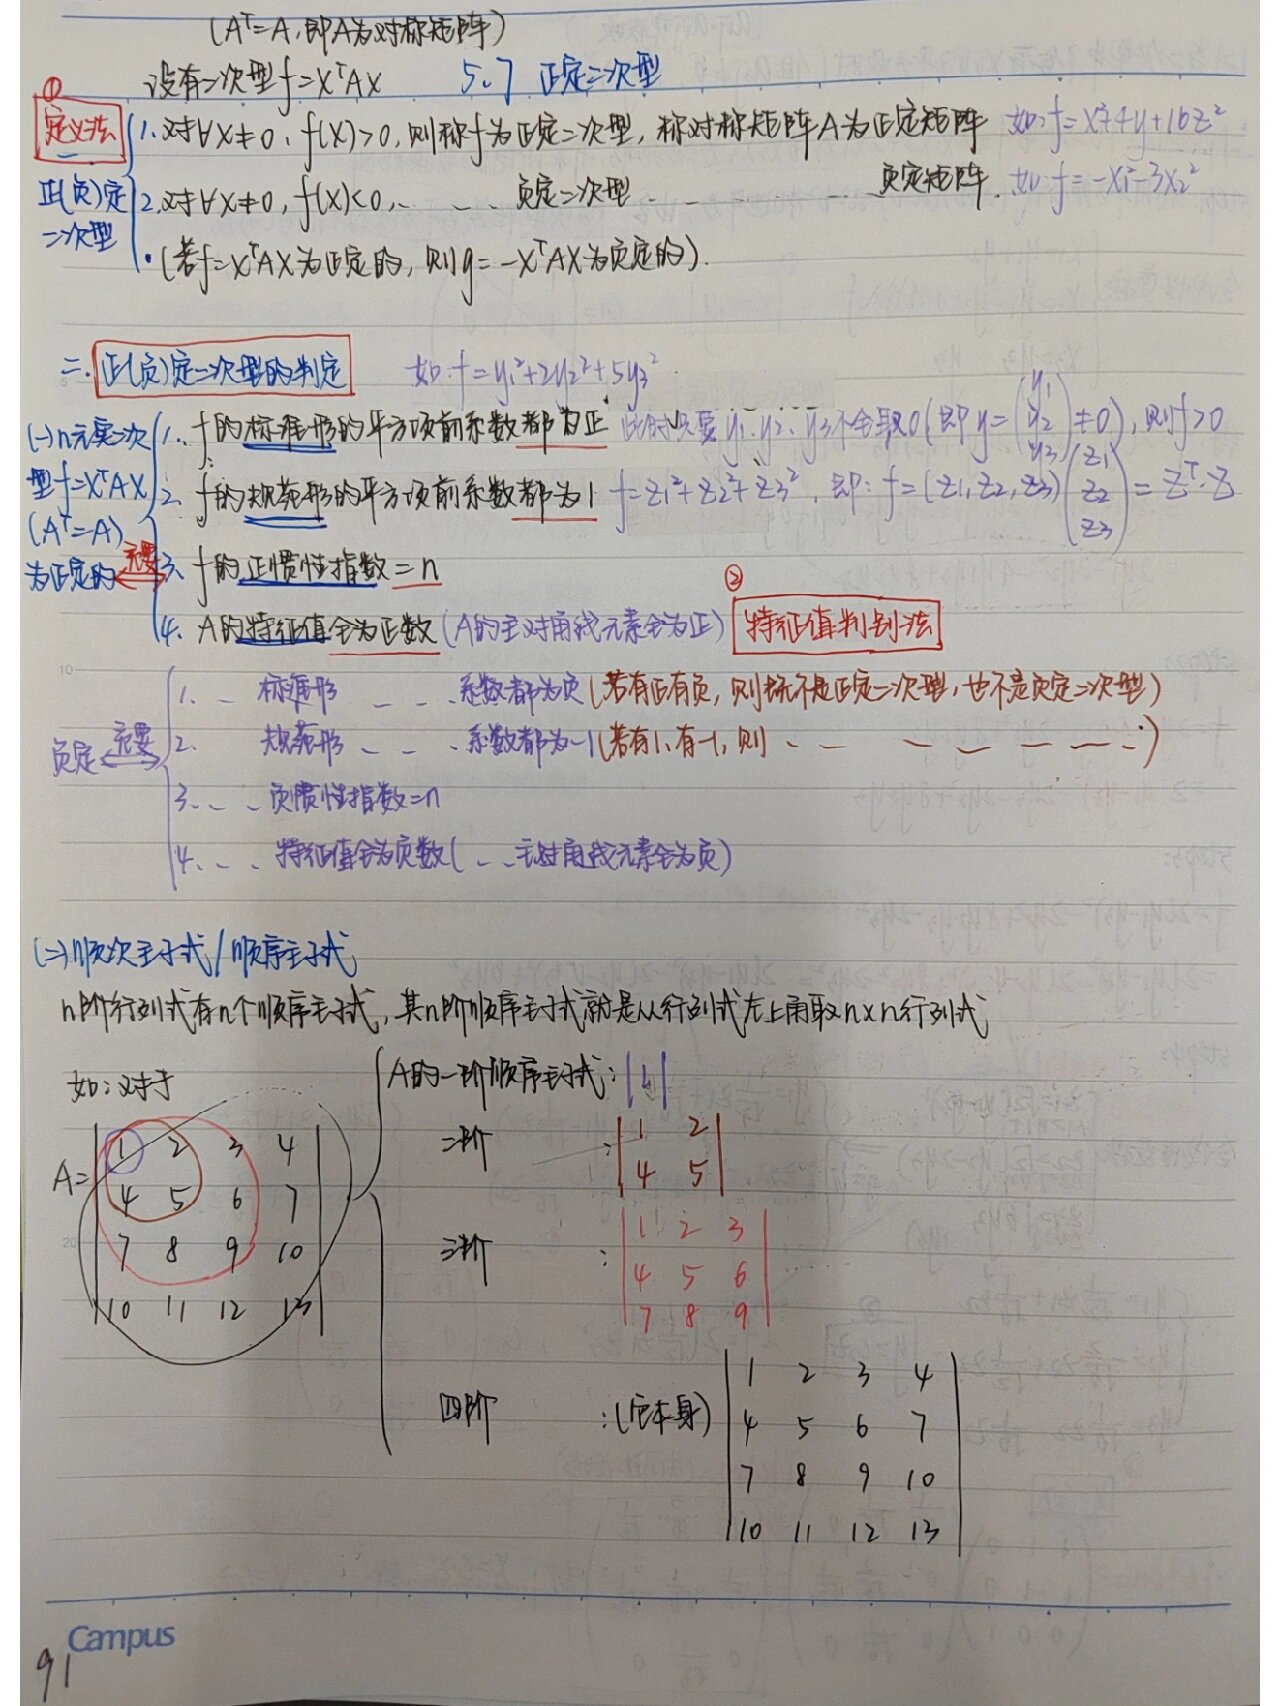 (Aᵀ=A,即A为对称矩阵)
设有二次型f=XᵀAX 5.7 正定二次型
①
定义法
一.
正(负)定二次型
1.对∀X≠0,f(X)>0,则称f为正定二次型,称对称矩阵A为正定矩阵 如:f=x²+4y+16z²
2.对∀X≠0,f(X)<0,、- - 负定二次型 - - - - 负定矩阵. 如:f=-x₁²-3x₂²
·(若f=XᵀAX为正定的,则g=-XᵀAX为负定的).
二.正(负)定二次型的判定 如:f=y₁²+2y₂²+5y₃²
(一)n元实二次型f=XᵀAX(Aᵀ=A)为正定的 充要
1. f的标准形的平方项前系数都为正 此时只要y₁、y₂、y₃不全取0(即y=(y₁ y₂ y₃)≠0),则f>0
2. f的规范形的平方项前系数都为1 f=z₁²+z₂²+z₃²,即:f=(z₁,z₂,z₃)(z₁ z₂ z₃)=Zᵀ·Z
3、f的正惯性指数=n
4. A的特征值全为正数(A的主对角线元素全为正) ② 特征值判别法
负定 充要
1、- 标准形 - - 、系数都为负(若有正有负,则既不是正定二次型,也不是负定二次型)
2. 规范形 - - 、系数都为-1(若有1、有-1,则、- - - - - -)
3、- - 负惯性指数=n
4、- - 特征值全为负数( - - 主对角线元素全为负)
(二)顺次主子式/顺序主子式
n阶行列式有n个顺序主子式,其n阶顺序主子式就是从行列式左上角取n×n行列式
如:对于
A=
1 2 3 4
4 5 6 7
7 8 9 10
10 11 12 13
A的一阶顺序主子式:|1|
二阶 :
1 2
4 5
三阶 :
1 2 3
4 5 6
7 8 9
四阶 :(它本身)
1 2 3 4
4 5 6 7
7 8 9 10
10 11 12 13
10
20
Campus
91